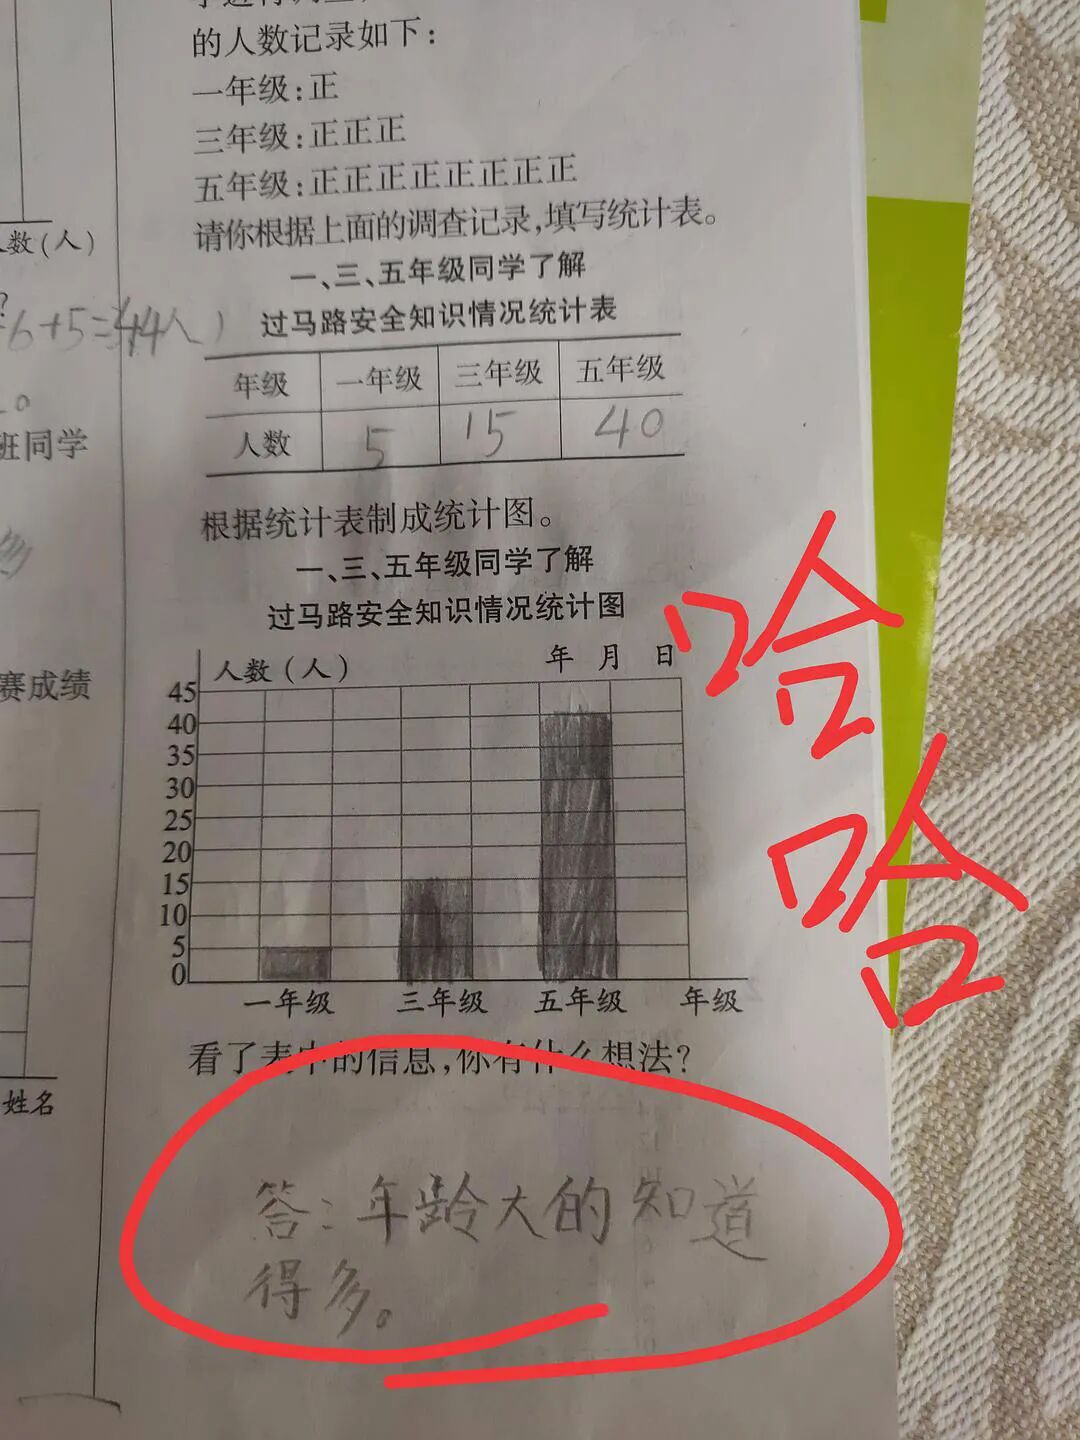 的人数记录如下：
一年级：正
三年级：正正正
五年级：正正正正正正正正
请你根据上面的调查记录，填写统计表。
一、三、五年级同学了解
过马路安全知识情况统计表
年级 一年级 三年级 五年级
人数 5 15 40
根据统计表制成统计图。
一、三、五年级同学了解
过马路安全知识情况统计图
人数（人） 年 月 日
45
40
35
30
25
20
15
10
5
0
一年级 三年级 五年级 年级
看了表中的信息，你有什么想法？
答：年龄大的知道
得多。
哈
哈
数（人）
6+5=44人）
班同学
多
赛成绩
姓名